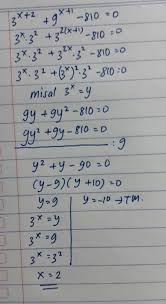 3^{x+2} + 9^{x+1} - 810 = 0
3^x . 3^2 + 3^{2(x+1)} - 810 = 0
3^x . 3^2 + 3^{2x} . 3^2 - 810 = 0
3^x . 3^2 + (3^x)^2 . 3^2 - 810 = 0
misal 3^x = y
9y + 9y^2 - 810 = 0
9y^2 + 9y - 810 = 0 : 9
y^2 + y - 90 = 0
(y-9)(y+10) = 0
y = 9 | y = -10 → TM.
3^x = y
3^x = 9
3^x = 3^2
x = 2